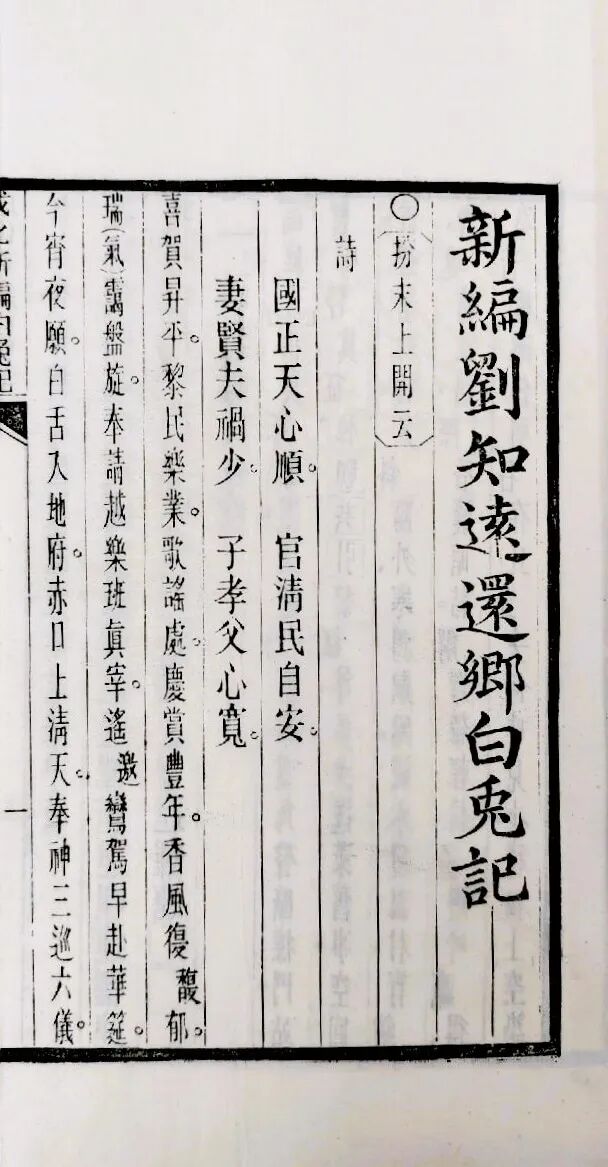 新編劉知遠還鄉白兎記
○（扮末上開云）
詩
國正天心順。官清民自安。
妻賢夫禍少。子孝父心寬。
喜賀昇平。黎民樂業。歌謠處。慶賞豐年。香風復馥郁。
瑞（氣）靄盤旋。奉請越樂班真宰。遙邀鸞駕早赴華筵。
今宵夜願。白舌入地府。赤口上清天。奉神三巡六儀。
新編白兎記
一